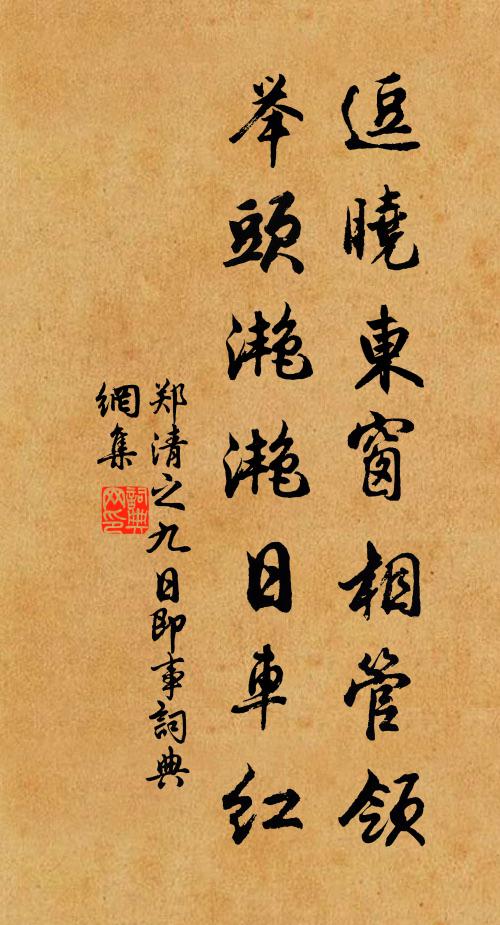 逗曉東窗相管領
举頭滟滟日車紅
郑清之九日即事詞典
網集
詞典
网印